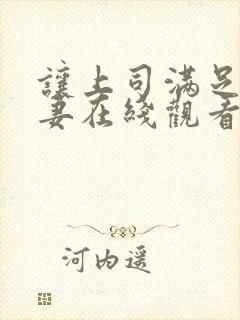 讓上司滿足
妻在綫觀看
河内遥